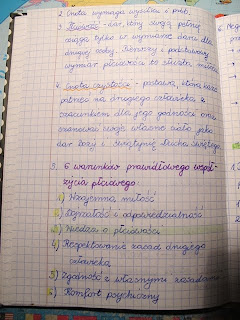 2. Cnota wymaga wysiłku i prób.
3. Płciowość - dar, który swoją pełnię
osiąga tylko w wymianie daru dla
drugiej osoby. Pierwszy i podstawowy
wymiar płciowości to służba miłości.
4. Cnota czystości - postawa, która każe
patrzeć na drugiego człowieka z
szacunkiem dla jego godności oraz
szanować swoje własne ciało jako
dar Boży i świątynię Ducha Świętego.
5. 6 warunków prawidłowego współ-
życia płciowego:
1) Wzajemna miłość
2) Dojrzałość i odpowiedzialność
3) Wiedza o płciowości
4) Respektowanie zasad drugiego
człowieka
5) Zgodność z własnymi zasadami
6) Komfort psychiczny